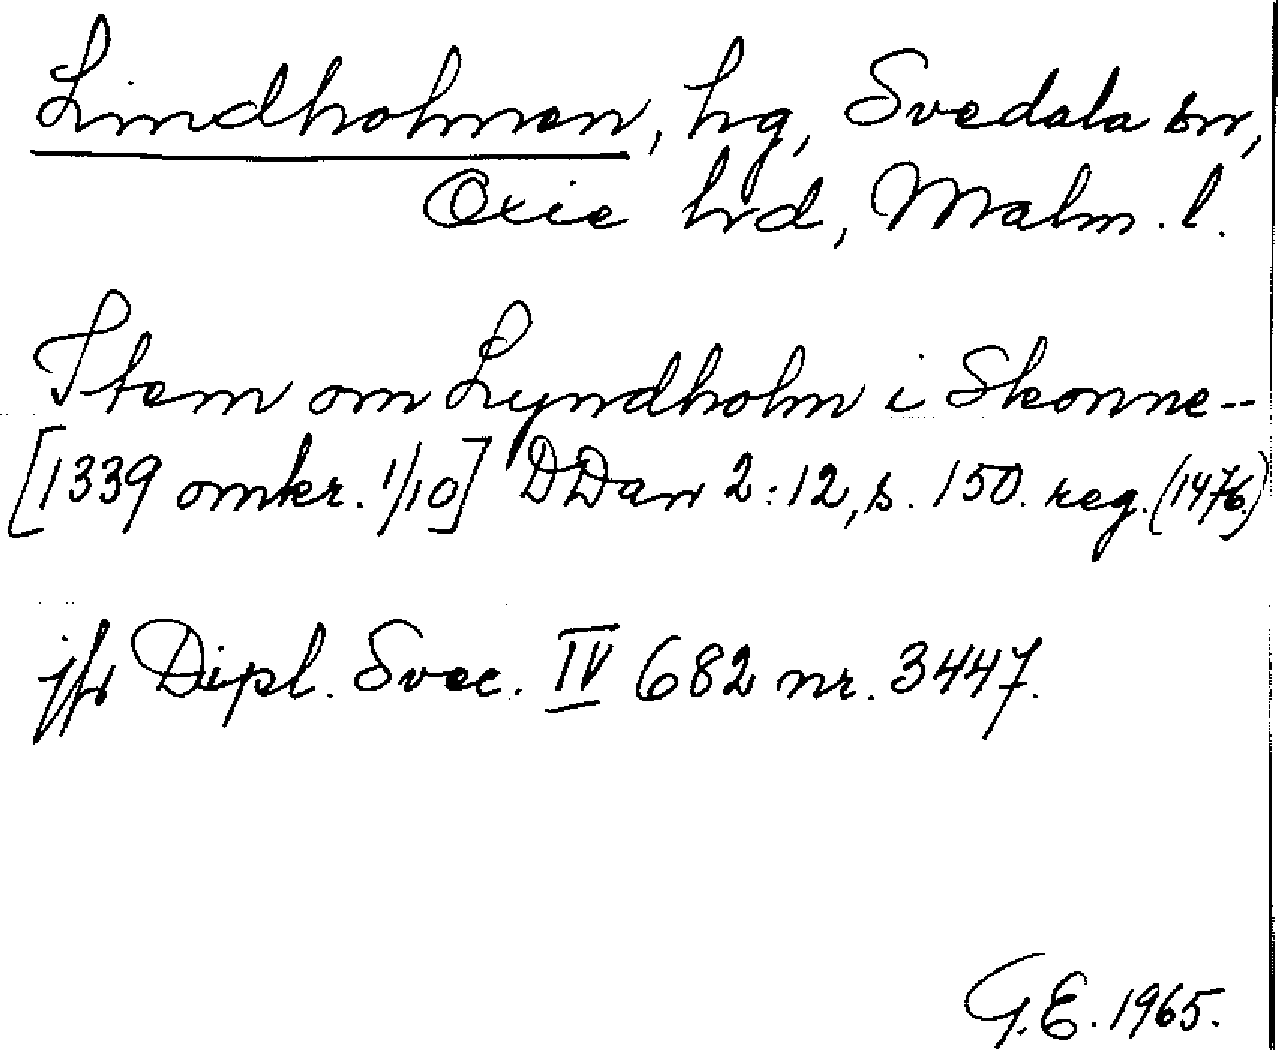 Lindholmen, hg, Svedala sn,
Oxie hrd, Malm. l.
Item om Lyndholm i Skonne--
[1339 omkr. 1/10] DDan 2:12, s. 150. reg. (1476.)
jfr Dipl. Svec. IV 682 nr. 3447.
G.E. 1965.